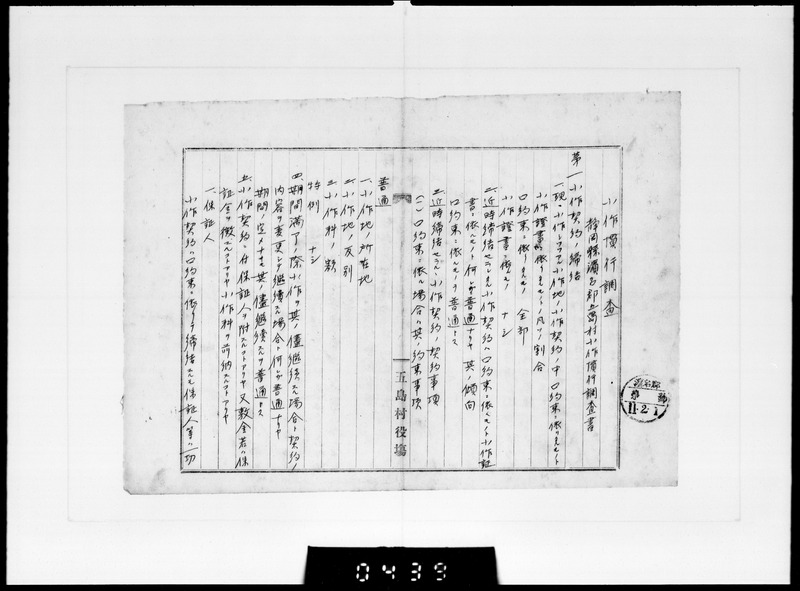 小作慣行調査
静岡縣濱名郡五島村小作慣行調査書
第一 小作契約ノ締結
一、現ニ小作シツヽアル小作地ノ小作契約ノ中口約束ニ依リタルモノト
小作證書ニ依リタルモノトノ凡ソノ割合
口約束ニ依リタルモノ 全部
小作證書ニ依ルモノ ナシ
二、近時締結セラルヽ小作契約ハ口約束ニ依ルモノト小作証
書ニ依ルモノト何レガ普通ナリヤ 其ノ傾向
口約束ニ依ルモノヲ普通トス
三、近時締結セラルヽ小作契約ノ契約事項
(一)口約束ニ依ル場合ハ其ノ約束事項
五島村役場
普通
一、小作地ノ所在地
二、小作地ノ反別
三、小作料ノ額
特例 ナシ
四、期間満了ノ際小作ヲ其ノ儘継続スル場合ト契約ノ
内容ヲ変更シテ継続スル場合ト何レガ普通ナリヤ
期間ノ定メナキモ其ノ儘継続スルヲ普通トス
五、小作契約ニ付保証人ヲ附スルコトアリヤ又敷金若ハ保
証金ヲ徴スルコトアリヤ小作料ヲ前納スルコトアリヤ
一、保証人
小作契約ハ口約束ニ依リテ締結スルモ保証人等ハ一切
11.2.1
0439